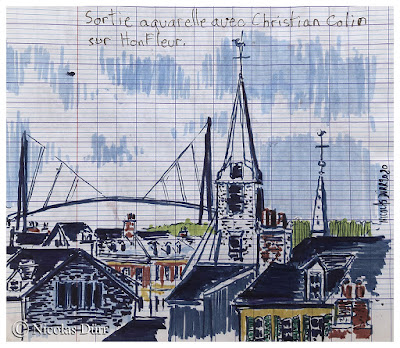 Sortie aquarelle avec Christian Colin
sur Honfleur.
© Nicolas Dürr